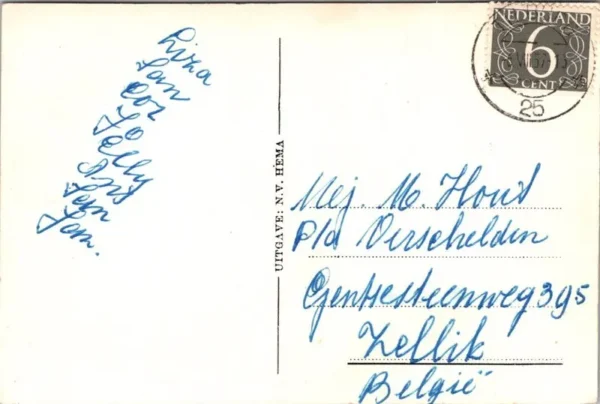 Liza
Jan
Cor
Jo
Elly
Ans
Jan
Jan.
UITGAVE: N.V. HEMA
NEDERLAND
6
CENT
25
Mej. M. Hout
p/a Verschelden
Gentsesteenweg 395
Zellik
België